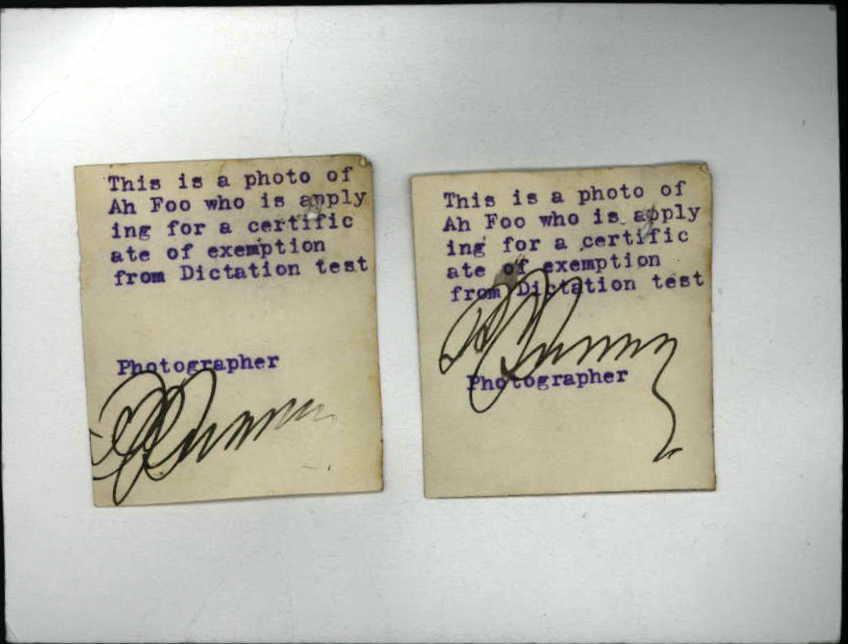 This is a photo of
Ah Foo who is apply
ing for a certific
ate of exemption
from Dictation test
Photographer
This is a photo of
Ah Foo who is apply
ing for a certific
ate of exemption
from Dictation test
Photographer